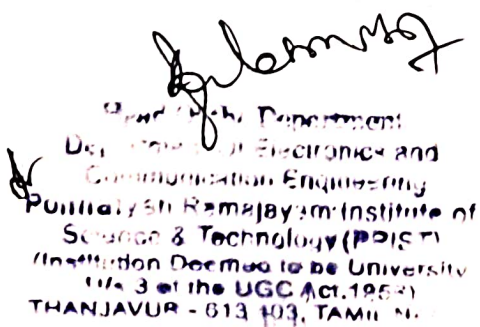 Head of the Department
Department of Electronics and
Communication Engineering
Ponnaiyah Ramajayam Institute of
Science & Technology (PRIST)
(Institution Deemed to be University
U/s 3 of the UGC Act. 1956)
THANJAVUR - 613 403, TAMIL